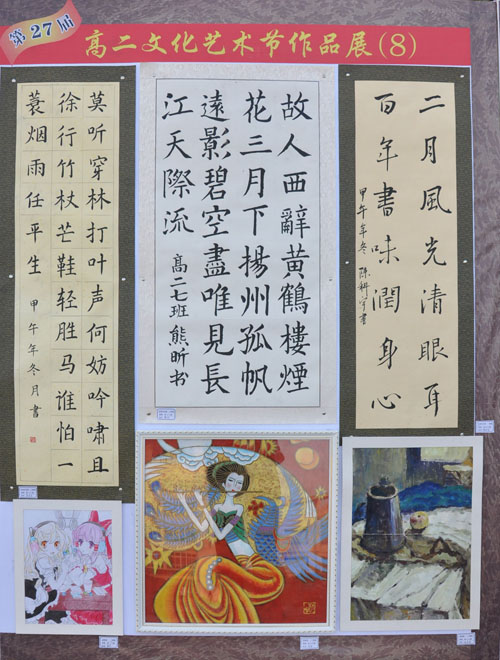 第27届
高二文化艺术节作品展(8)
莫听穿林打叶声何妨吟啸且
徐行竹杖芒鞋轻胜马谁怕一
蓑烟雨任平生
甲午年冬月书
故人西辭黄鶴樓煙
花三月下揚州孤帆
遠影碧空盡唯見長
江天際流
高二七班熊昕书
二月風光清眼耳
百年書味潤身心
甲午年冬